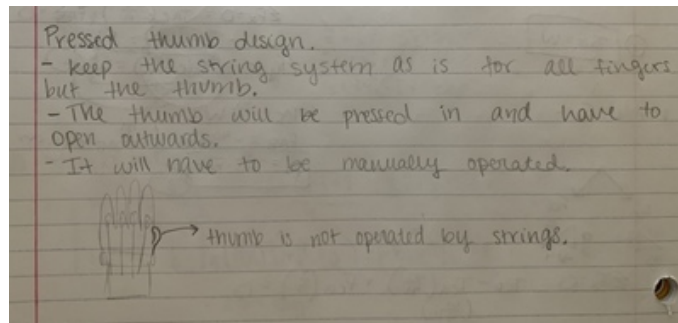 Pressed thumb design.
- keep the string system as is for all fingers
but the thumb.
- The thumb will be pressed in and have to
open outwards.
- It will have to be manually operated.
thumb is not operated by strings.